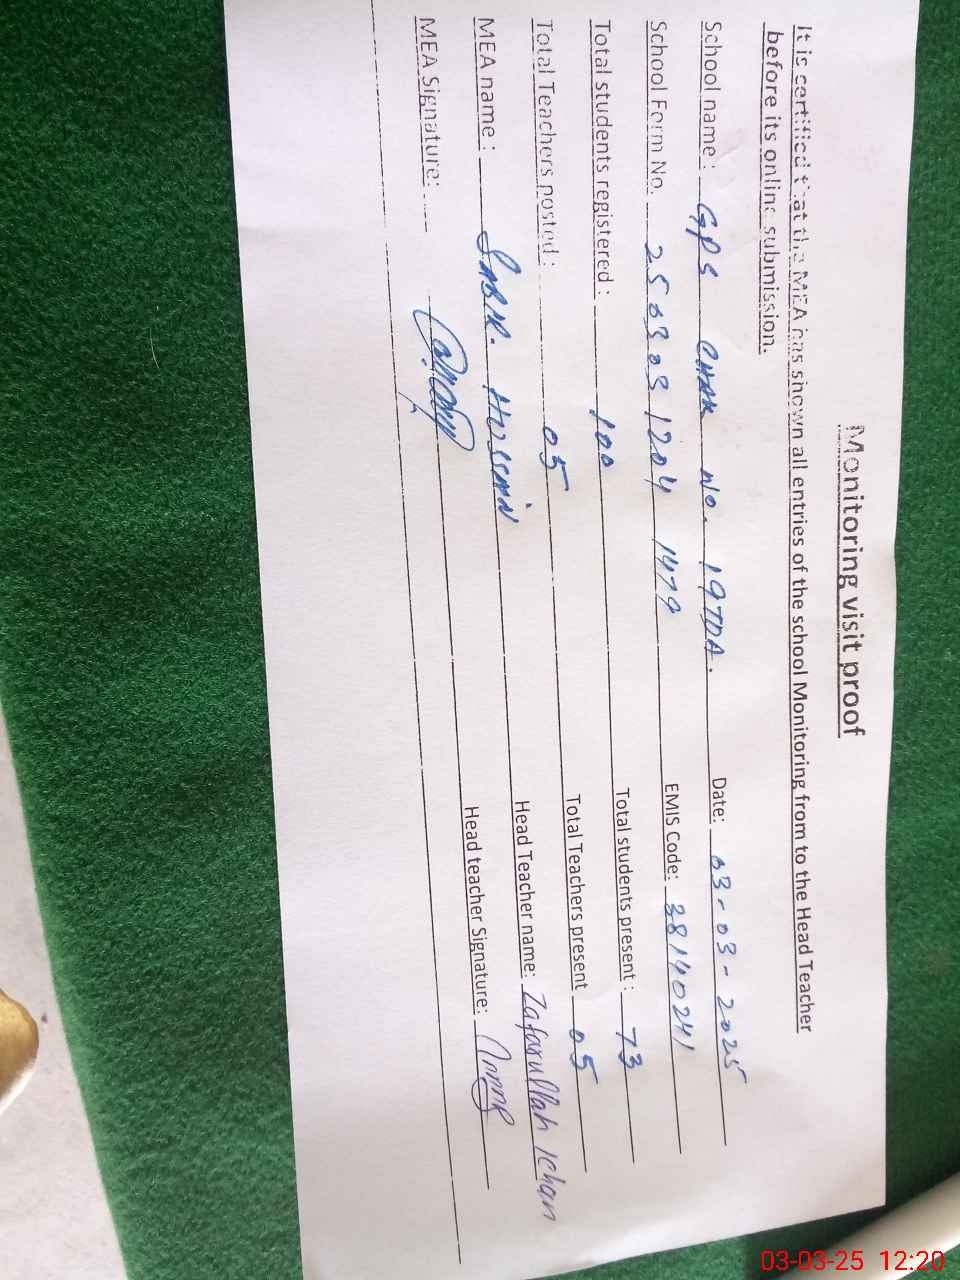 Monitoring visit proof
It is certified that the MEA has shown all entries of the school Monitoring from to the Head Teacher
before its online submission.
School name: GPS CHAK NO. 19TDA. Date: 03-03-2025
School Form No. 25030312041479 EMIS Code: 38140241
Total students registered: 100 Total students present: 73
Total Teachers posted: 05 Total Teachers present 05
MEA name: SABIR. HUSSAIN Head Teacher name: Zafarullah Khan
MEA Signature: Head teacher Signature:
03-03-25 12:20